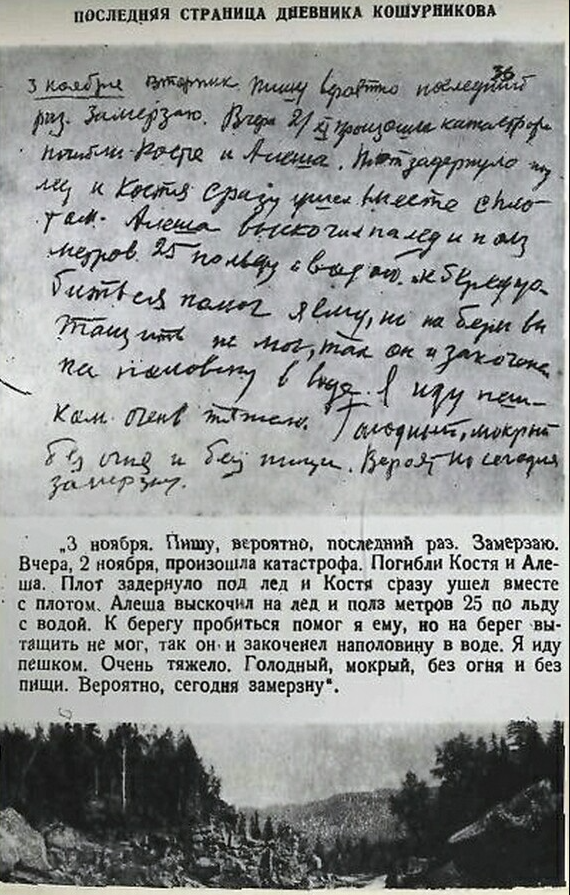 ПОСЛЕДНЯЯ СТРАНИЦА ДНЕВНИКА КОШУРНИКОВА
36
3 ноября Вторник. Пишу вероятно последний
раз. Замерзаю. Вчера 2/XI произошла катастрофа
погибли Костя и Алеша. Плот задернуло под
лед и Костя сразу ушел вместе с пло-
том. Алеша выскочил на лед и полз
метров 25 по льду с водой. К берегу про-
биться помог я ему, но на берег вы
тащить не мог, так он и закоченел
на половину в воде. Я иду пеш-
ком. Очень тяжело. Голодный, мокрый
без огня и без пищи. Вероятно сегодня
замерзну.
„3 ноября. Пишу, вероятно, последний раз. Замерзаю.
Вчера, 2 ноября, произошла катастрофа. Погибли Костя и Але-
ша. Плот задернуло под лед и Костя сразу ушел вместе
с плотом. Алеша выскочил на лед и полз метров 25 по льду
с водой. К берегу пробиться помог я ему, но на берег вы-
тащить не мог, так он и закоченел наполовину в воде. Я иду
пешком. Очень тяжело. Голодный, мокрый, без огня и без
пищи. Вероятно, сегодня замерзну".